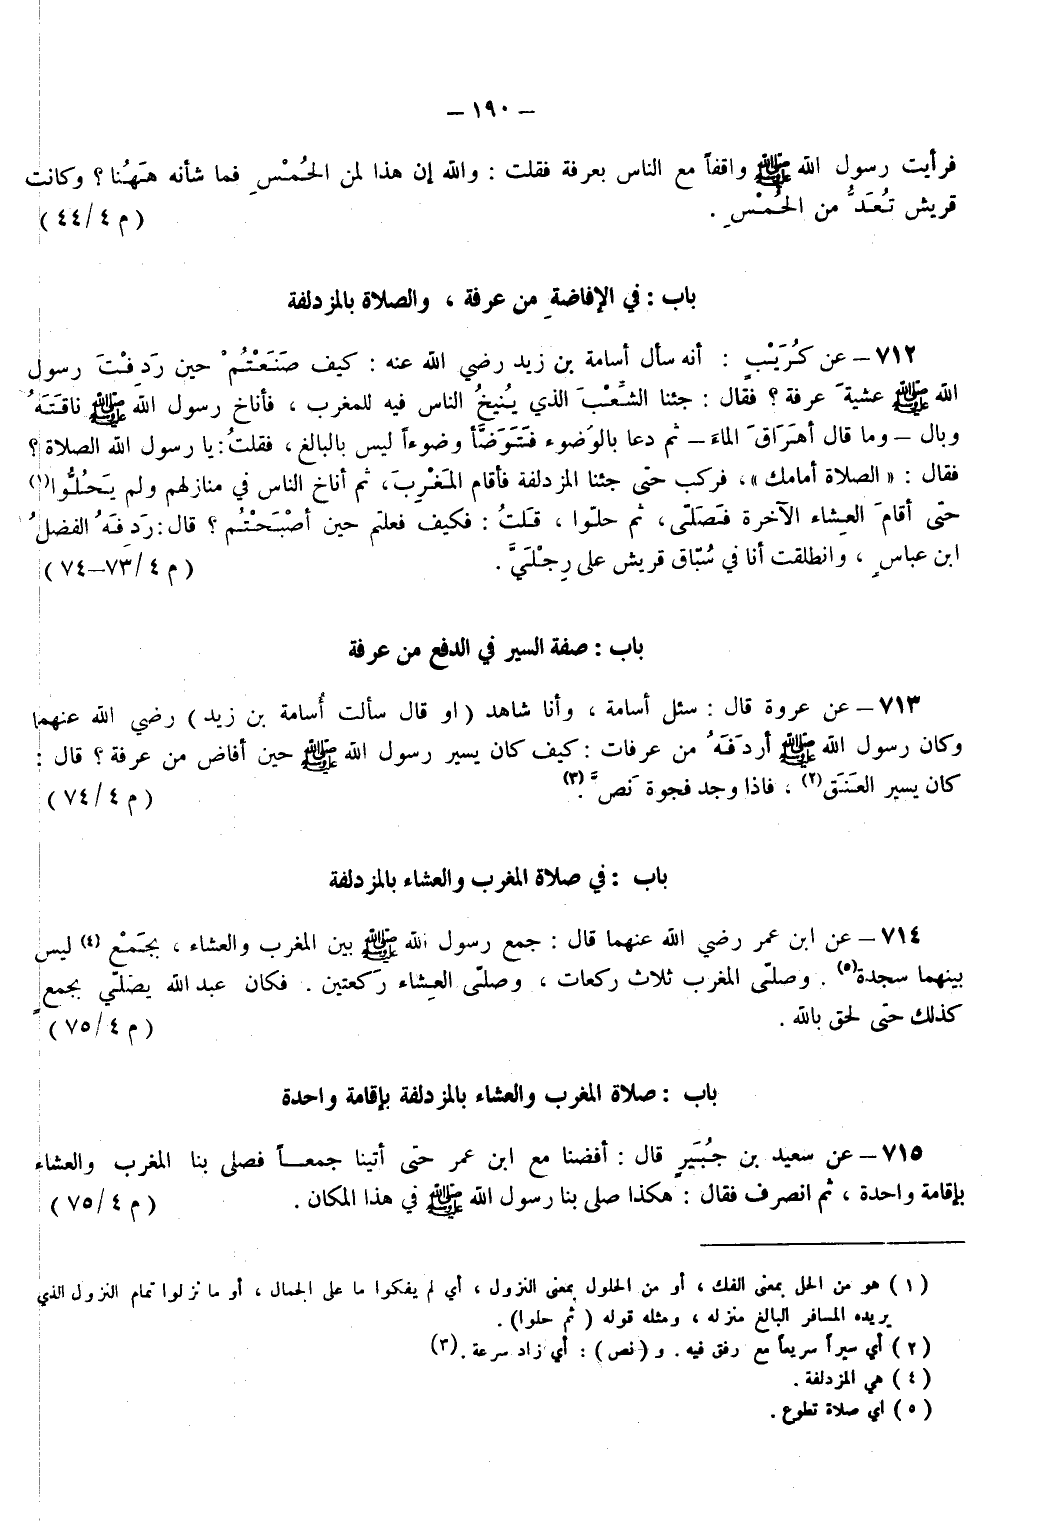 – ١٩٠ –
فرأيت رسول الله ﷺ واقفاً مع الناس بعرفة فقلت : والله إن هذا لمن الحُمْسِ فما شأنه هَهُنا ؟ وكانت
قريش تُعَدُّ من الحُمْسِ . ( م ٤/٤٤ )
باب : في الإفاضةِ من عرفة ، والصلاة بالمزدلفة
٧١٢ – عن كُرَيْبٍ : أنه سأل أسامة بن زيد رضي الله عنه : كيف صَنَعْتُمْ حين رَدِفْتَ رسول
الله ﷺ عشيةَ عرفة ؟ فقال : جئنا الشِّعْبَ الذي يُنِيخُ الناس فيه للمغرب ، فأناخ رسول الله ﷺ ناقَتَهُ
وبال – وما قال أهَرَاقَ الماءَ – ثم دعا بالوَضوء فَتَوَضَّأ وضوءاً ليس بالبالغ ، فقلتُ : يا رسول الله الصلاة ؟
فقال : « الصلاة أمامك » ، فركب حتى جئنا المزدلفة فأقام المَغْرِبَ ، ثم أناخ الناس في منازلهم ولم يَحُلُّوا(١)
حتى أقامَ العِشاء الآخرة فَصَلّى ، ثم حلّوا ، قلتُ : فكيف فعلتم حين أصْبَحْتُم ؟ قال : رَدِفَهُ الفضلُ
ابن عباسٍ ، وانطلقت أنا في سُبّاق قريش على رِجْلَيَّ . ( م ٤/٧٣–٧٤ )
باب : صفة السير في الدفع من عرفة
٧١٣ – عن عروة قال : سئل أسامة ، وأنا شاهد ( او قال سألت أُسامة بن زيد ) رضي الله عنهما
وكان رسول الله ﷺ أردَفَهُ من عرفات : كيف كان يسير رسول الله ﷺ حين أفاض من عرفة ؟ قال :
كان يسير العَنَق(٢) ، فاذا وجد فجوة نَصَّ .(٣) ( م ٤/٧٤ )
باب : في صلاة المغرب والعشاء بالمزدلفة
٧١٤ – عن ابن عمر رضي الله عنهما قال : جمع رسول الله ﷺ بين المغرب والعشاء ، بجَمْع (٤) ليس
بينهما سجدة(٥) . وصلّى المغرب ثلاث ركعات ، وصلّى العِشاء رَكعتين . فكان عبد الله يصلّي بجمعٍ
كذلك حتى لحق بالله . ( م ٤/٧٥ )
باب : صلاة المغرب والعشاء بالمزدلفة بإقامة واحدة
٧١٥ – عن سعيد بن جُبَيَرٍ قال : أفضنا مع ابن عمر حتى أتينا جمعــاً فصلى بنا المغرب والعشاء
بإقامة واحدة ، ثم انصرف فقال : هكذا صلى بنا رسول الله ﷺ في هذا المكان . ( م ٤/٧٥ )
( ١ ) هو من الحل بمعنى الفك ، أو من الحلول بمعنى النزول ، أي لم يفكوا ما على الجمال ، أو ما نزلوا تمام النزول الذي
يريده المسافر البالغ منزله ، ومثله قوله ( ثم حلوا) .
( ٢ ) أي سيراً سريعاً مع رفق فيه . و ( نص ) : أي زاد سرعة .(٣)
( ٤ ) هي المزدلفة .
( ٥ ) اي صلاة تطوع .